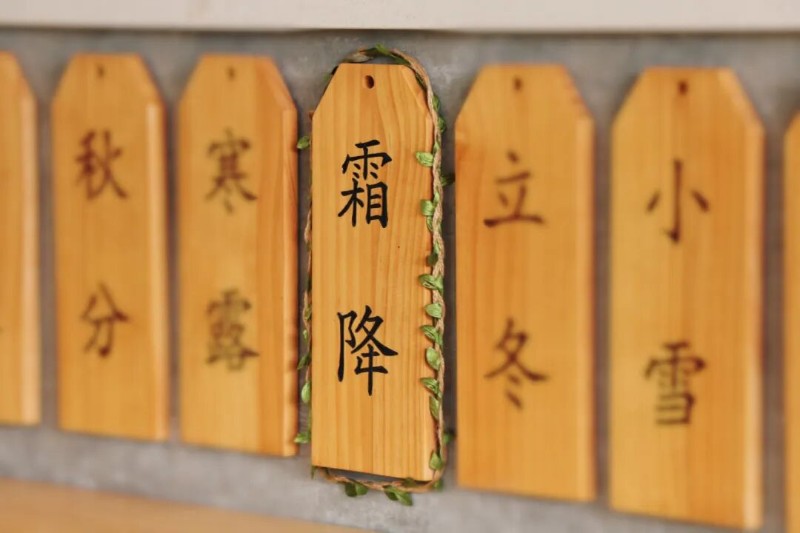 秋分
寒露
霜降
立冬
小雪